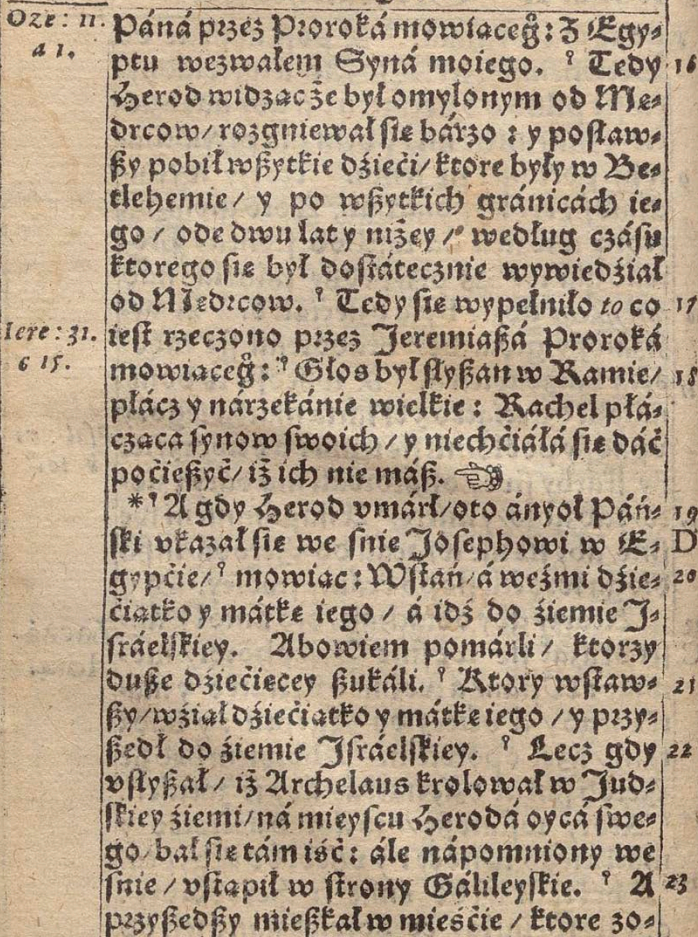 Oze: 11. Páná przez Proroká mowiaceg̊: Z Egy-
a 1. ptu wezwałem Syná moiego. ⸮ Tedy 16
Herod widzac że był omylonym od Me-
drcow/ rozgniewał sie bárzo : y posław-
ßy pobił wßytkie dźieći/ ktore były w Be-
tlehemie/ y po wßytkich gránicách ie-
go / ode dwu lat y niżey / według czásu
ktorego sie był dostátecznie wywiedźiał
od Medrcow. ⸮ Tedy sie wypełniło to co 17
Iere: 31. iest rzeczono przez Jeremiaßá Proroká
c 15. mowiaceg̊: ⸮ Głos był słyßan w Ramie/ 18
płácz y nárzekánie wielkie : Rachel płá-
czaca synow swoich / y niechćiáłá sie dáć
poćießyć/ iż ich nie máß. ☜
*⸮ A gdy Herod vmárł/ oto ányoł Páń- 19
ski vkazał sie we snie Josephowi w E- D
gypćie/ ⸮ mowiac : Wstań/ á weźmi dźie- 20
ćiatko y mátke iego / á idź do źiemie J-
sráelskiey. Abowiem pomárli / ktorzy
duße dźiećiecey ßukáli. ⸮ Ktory wstaw- 21
ßy/ wźiał dźiećiatko y mátke iego / y przy-
ßedł do źiemie Jsráelskiey. ⸮ Lecz gdy 22
vsłyßał / iż Archelaus krolował w Jud-
skiey źiemi/ ná mieyscu Herodá oycá swe-
go/ bał sie tám iść: ále nápomniony we
snie / vstapił w strony Gálileyskie. ⸮ A 23
przyßedßy mießkał w mieśćie / ktore zo-